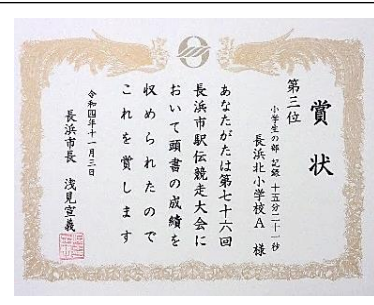 賞状
第三位
小学生の部 記録 十五分二十一秒
長浜北小学校A 様
あなたがたは第七十六回
長浜市駅伝競走大会に
おいて頭書の成績を
収められたので
これを賞します
令和四年十一月三日
長浜市長 浅見宣義